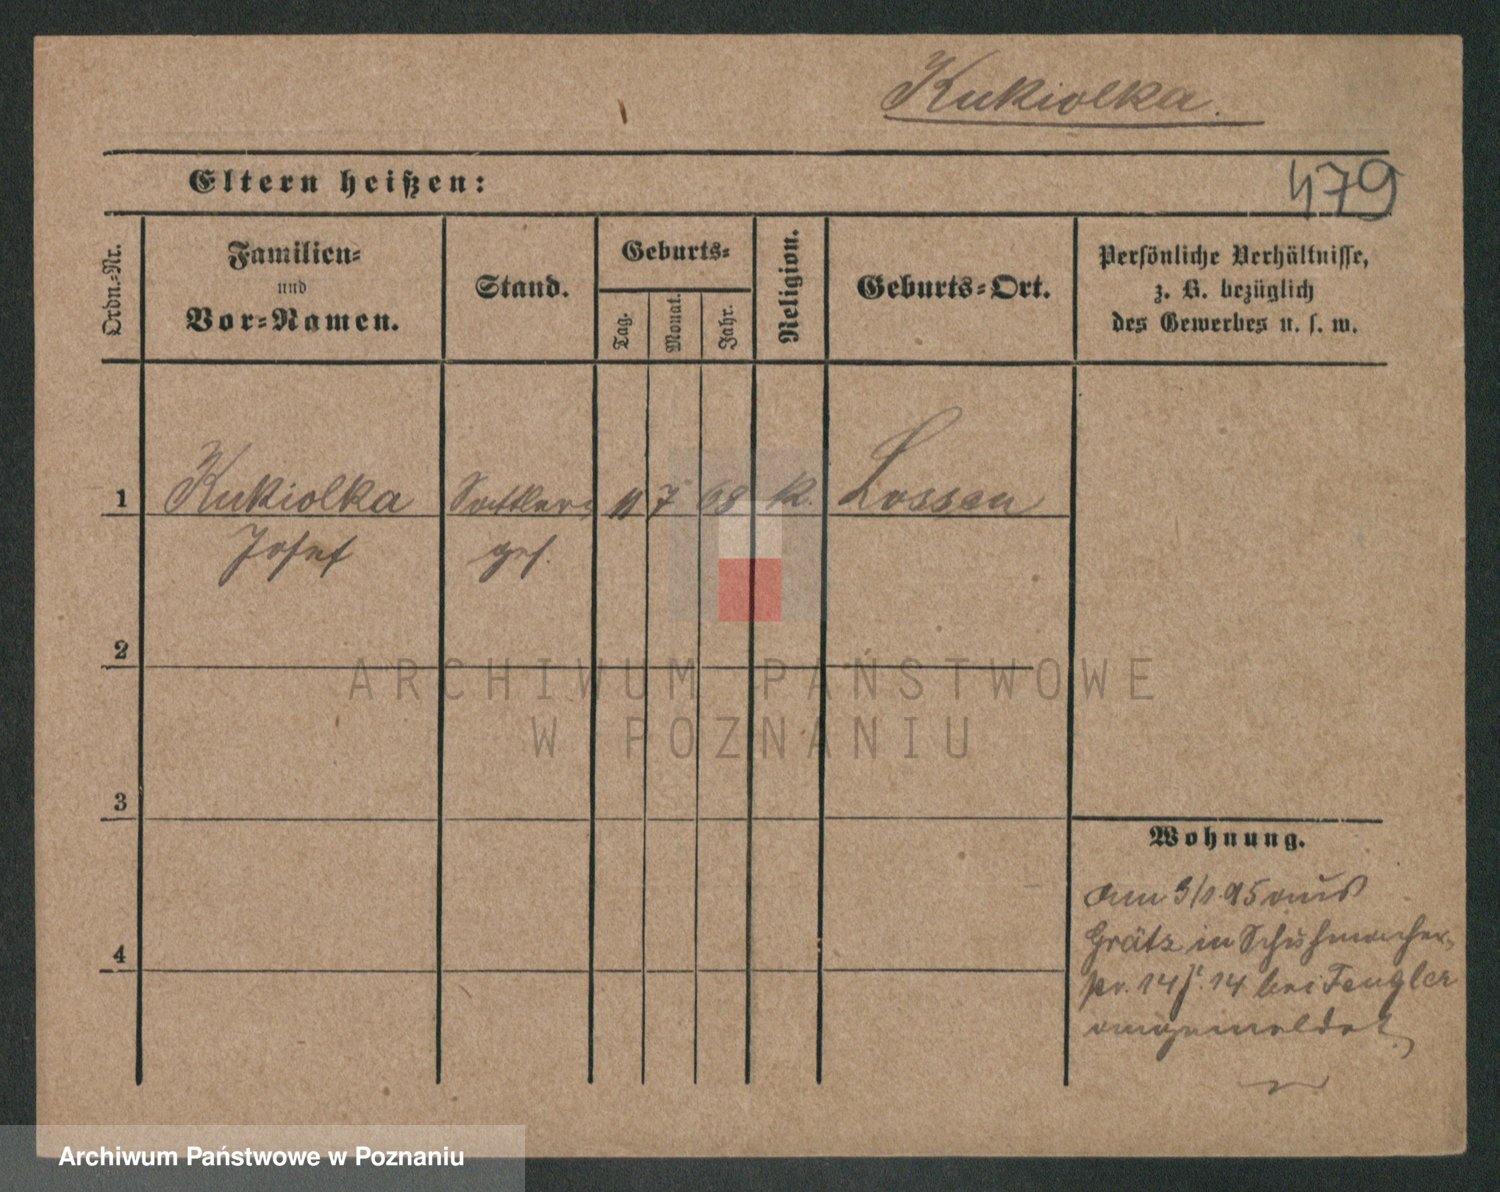 Kukiolka.
479
Eltern heißen:
Ordn.-Nr.
Familien-
und
Vor-Namen.
Stand.
Geburts-
Tag.
Monat.
Jahr.
Religion.
Geburts-Ort.
Persönliche Verhältnisse,
z. B. bezüglich
des Gewerbes u. s. w.
1
Kukiolka Sattler- 11 7 68 K. Lossen
Josef ges.
2
ARCHIWUM PAŃSTWOWE
W POZNANIU
3
Wohnung.
am 3/1 95 aus
Grätz in Schuhmacher-
14 bei Fengler
angemeldet
4
Archiwum Państwowe w Poznaniu